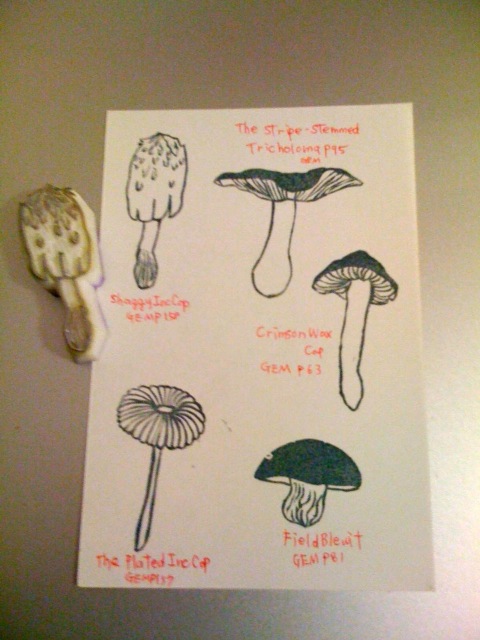 The Stripe-Stemmed
Tricholoma P95
GEM
Shaggy Inc Cap
GEM P158
Crimson Wax
Cap
GEM P63
Field Blewit
GEM P81
The Plated Inc Cap
GEM P137